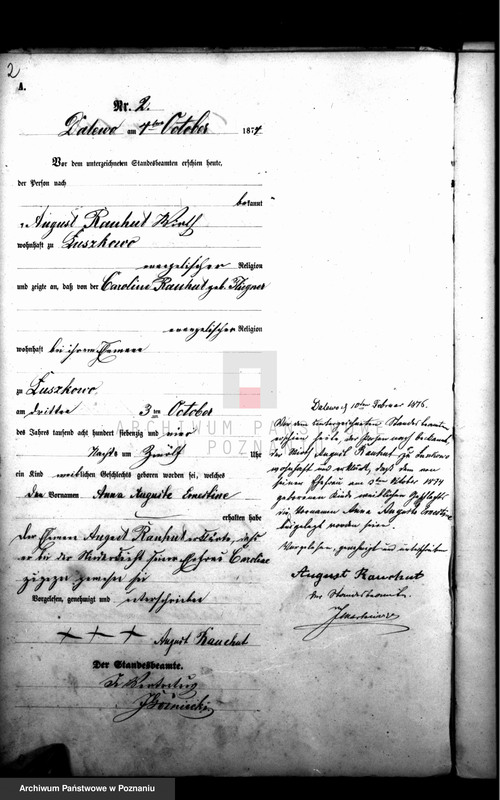 2
A.
Nr. 2.
Dalewo am 4ten October 1874
Vor dem unterzeichneten Standesbeamten erschien heute,
der Person nach
bekannt
August Rauhut Wirth
wohnhaft zu Luszkowo
evangelischer Religion
und zeigte an, daß von der Caroline Rauhut geb.
evangelischer Religion
wohnhaft bei ihrem Ehemann
zu Luszkowo
am dritten 3ten October
des Jahres tausend acht hundert siebenzig und vier
Nachts um Zwölf Uhr
ein Kind weiblichen Geschlechts geboren worden sei, welches
den Vornamen Anna Auguste Ernestine
erhalten habe
August Rauhut erklärte, daß
er bei der Niederkunft seiner Ehefrau Caroline
zugegen gewesen sei
Vorgelesen, genehmigt und unterschrieben
+ + + August Rauchut
Der Standesbeamte.
In Vertretung
Dalewo, 10ten Februar 1876.
Vor dem unterzeichneten Standesbeamten
erschien heute, der Person nach bekannt,
der Wirth August Rauhut zu
wohnhaft und erklärt, daß dem von
seiner Ehefrau am 3ten October 1874
geborenen Kinde weiblichen Geschlechts
die Vornamen Anna Auguste Ernestine
beigelegt worden seien.
Vorgelesen, genehmigt und unterschrieben
August Rauchut
Der Standesbeamte.
ARCHIWUM PAŃSTWOWE
POZNAŃ
Archiwum Państwowe w Poznaniu